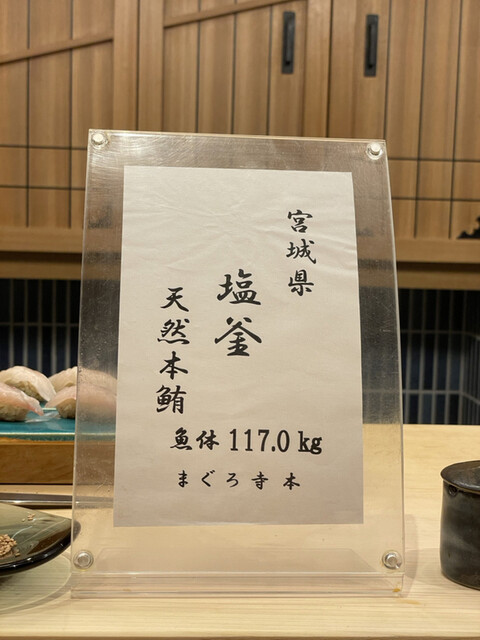 宮城県
塩釜
天然本鮪
魚体 117.0 kg
まぐろ寺本